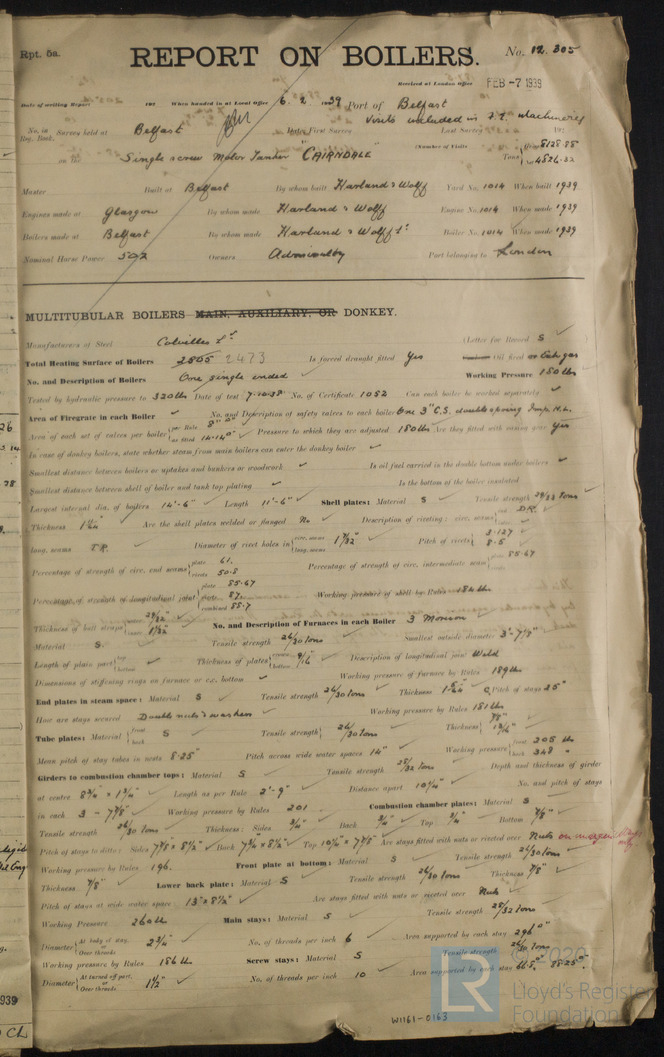 Rpt. 5a.
REPORT ON BOILERS.
No. 12.305
Received at London Office FEB -7 1939
Date of writing Report 192 When handed in at Local Office 6. 2. 1939 Port of Belfast
No. in Reg. Book. Survey held at Belfast Date, First Survey Last Survey 192
Visits included in machinery
(Number of Visits
on the Single screw Motor Tanker "CAIRNDALE" Tons
Master Built at Belfast By whom built Harland & Wolff Yard No. 1014 When built 1939
Engines made at Glasgow By whom made Harland & Wolff Engine No. 1014 When made 1939
Boilers made at Belfast By whom made Harland & Wolff Lt. Boiler No. 1014 When made 1939
Nominal Horse Power 502 Owners Admiralty Port belonging to London
MULTITUBULAR BOILERS MAIN, AUXILIARY, OR DONKEY.
Manufacturers of Steel Colvilles Ltd (Letter for Record S
Total Heating Surface of Boilers 2505 2473 Is forced draught fitted Yes Oil fired or Exh. gas
No. and Description of Boilers One single ended Working Pressure 180 lbs
Tested by hydraulic pressure to 320 lbs Date of test 7.10.38 No. of Certificate 1052 Can each boiler be worked separately
Area of Firegrate in each Boiler No. and Description of safety valves to each boiler One 3" C.S. double spring Imp. H.L.
Area of each set of valves per boiler per Rule as fitted 14.14 Pressure to which they are adjusted 180 lbs Are they fitted with easing gear Yes
In case of donkey boilers, state whether steam from main boilers can enter the donkey boiler
Smallest distance between boilers or uptakes and bunkers or woodwork Is oil fuel carried in the double bottom under boilers
Smallest distance between shell of boiler and tank top plating Is the bottom of the boiler insulated
Largest internal dia. of boilers 14'-6" Length 11'-6" Shell plates: Material S Tensile strength tons
Thickness 1 1/4 Are the shell plates welded or flanged No Description of riveting: circ. seams end D.R.
long. seams T.R. Diameter of rivet holes in circ. seams long. seams 1 9/32 Pitch of rivets 3.127 8.5
Percentage of strength of circ. end seams plate 61. rivets 50.8 Percentage of strength of circ. intermediate seam
Percentage of strength of longitudinal joint plate 85.67 rivets 87. combined 88.7 Working pressure of shell by Rules 184 lbs
Thickness of butt straps No. and Description of Furnaces in each Boiler 3 Morison
Material S Tensile strength 26/30 tons Smallest outside diameter 3'-7 7/8"
Length of plain part top bottom Thickness of plates crown bottom 9/16 Description of longitudinal joint Weld
Dimensions of stiffening rings on furnace or c.c. bottom Working pressure of furnace by Rules 189 lbs
End plates in steam space: Material S Tensile strength 26/30 tons Thickness Pitch of stays 25"
How are stays secured Double nuts & washers Working pressure by Rules 181 lbs
Tube plates: Material front back S Tensile strength 26/30 tons Thickness 7/8" 13/16"
Mean pitch of stay tubes in nests 8.25" Pitch across wide water spaces 14" Working pressure front 205 lbs back 348 "
Girders to combustion chamber tops: Material S Tensile strength 28/32 tons Depth and thickness of girder
at centre 8 3/4" × 1 3/4" Length as per Rule 2'-9" Distance apart 10 1/4" No. and pitch of stays
in each 3 - 7 7/8" Working pressure by Rules 201 Combustion chamber plates: Material S
Tensile strength 26/30 tons Thickness: Sides 3/4" Back 3/4" Top 3/4" Bottom 7/8"
Pitch of stays to ditto: Sides Back Top Are stays fitted with nuts or riveted over Nuts on margin stays only
Working pressure by Rules 196. Front plate at bottom: Material S Tensile strength 26/30 tons
Thickness 7/8" Lower back plate: Material S Tensile strength 26/30 tons Thickness 7/8"
Pitch of stays at wide water space 13" × 8 1/2" Are stays fitted with nuts or riveted over Nuts
Working Pressure 260 lbs Main stays: Material S Tensile strength 28/32 tons
Diameter At body of stay, or Over threads 2 3/4" No. of threads per inch 6 Area supported by each stay 296
Working pressure by Rules 186 lb Screw stays: Material S Tensile strength 26/30 tons
Diameter At turned off part, or Over threads 1 1/2" No. of threads per inch 10 Area supported by each stay
W1161-0163
© 2020
LR
Lloyd's Register
Foundation